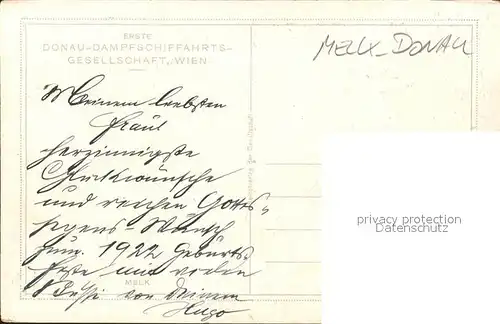 ERSTE
DONAU-DAMPFSCHIFFAHRTS-
GESELLSCHAFT, WIEN
MELK-DONAU
Meinem liebsten
Fräul
herzinnigste
Glückwünsche
und reichen Gottes-
segens-Wunsch
zum 1922 Geburts-
feste mit vielen
MELK
Küsse von Deinem
Hugo
privacy protection
Datenschutz